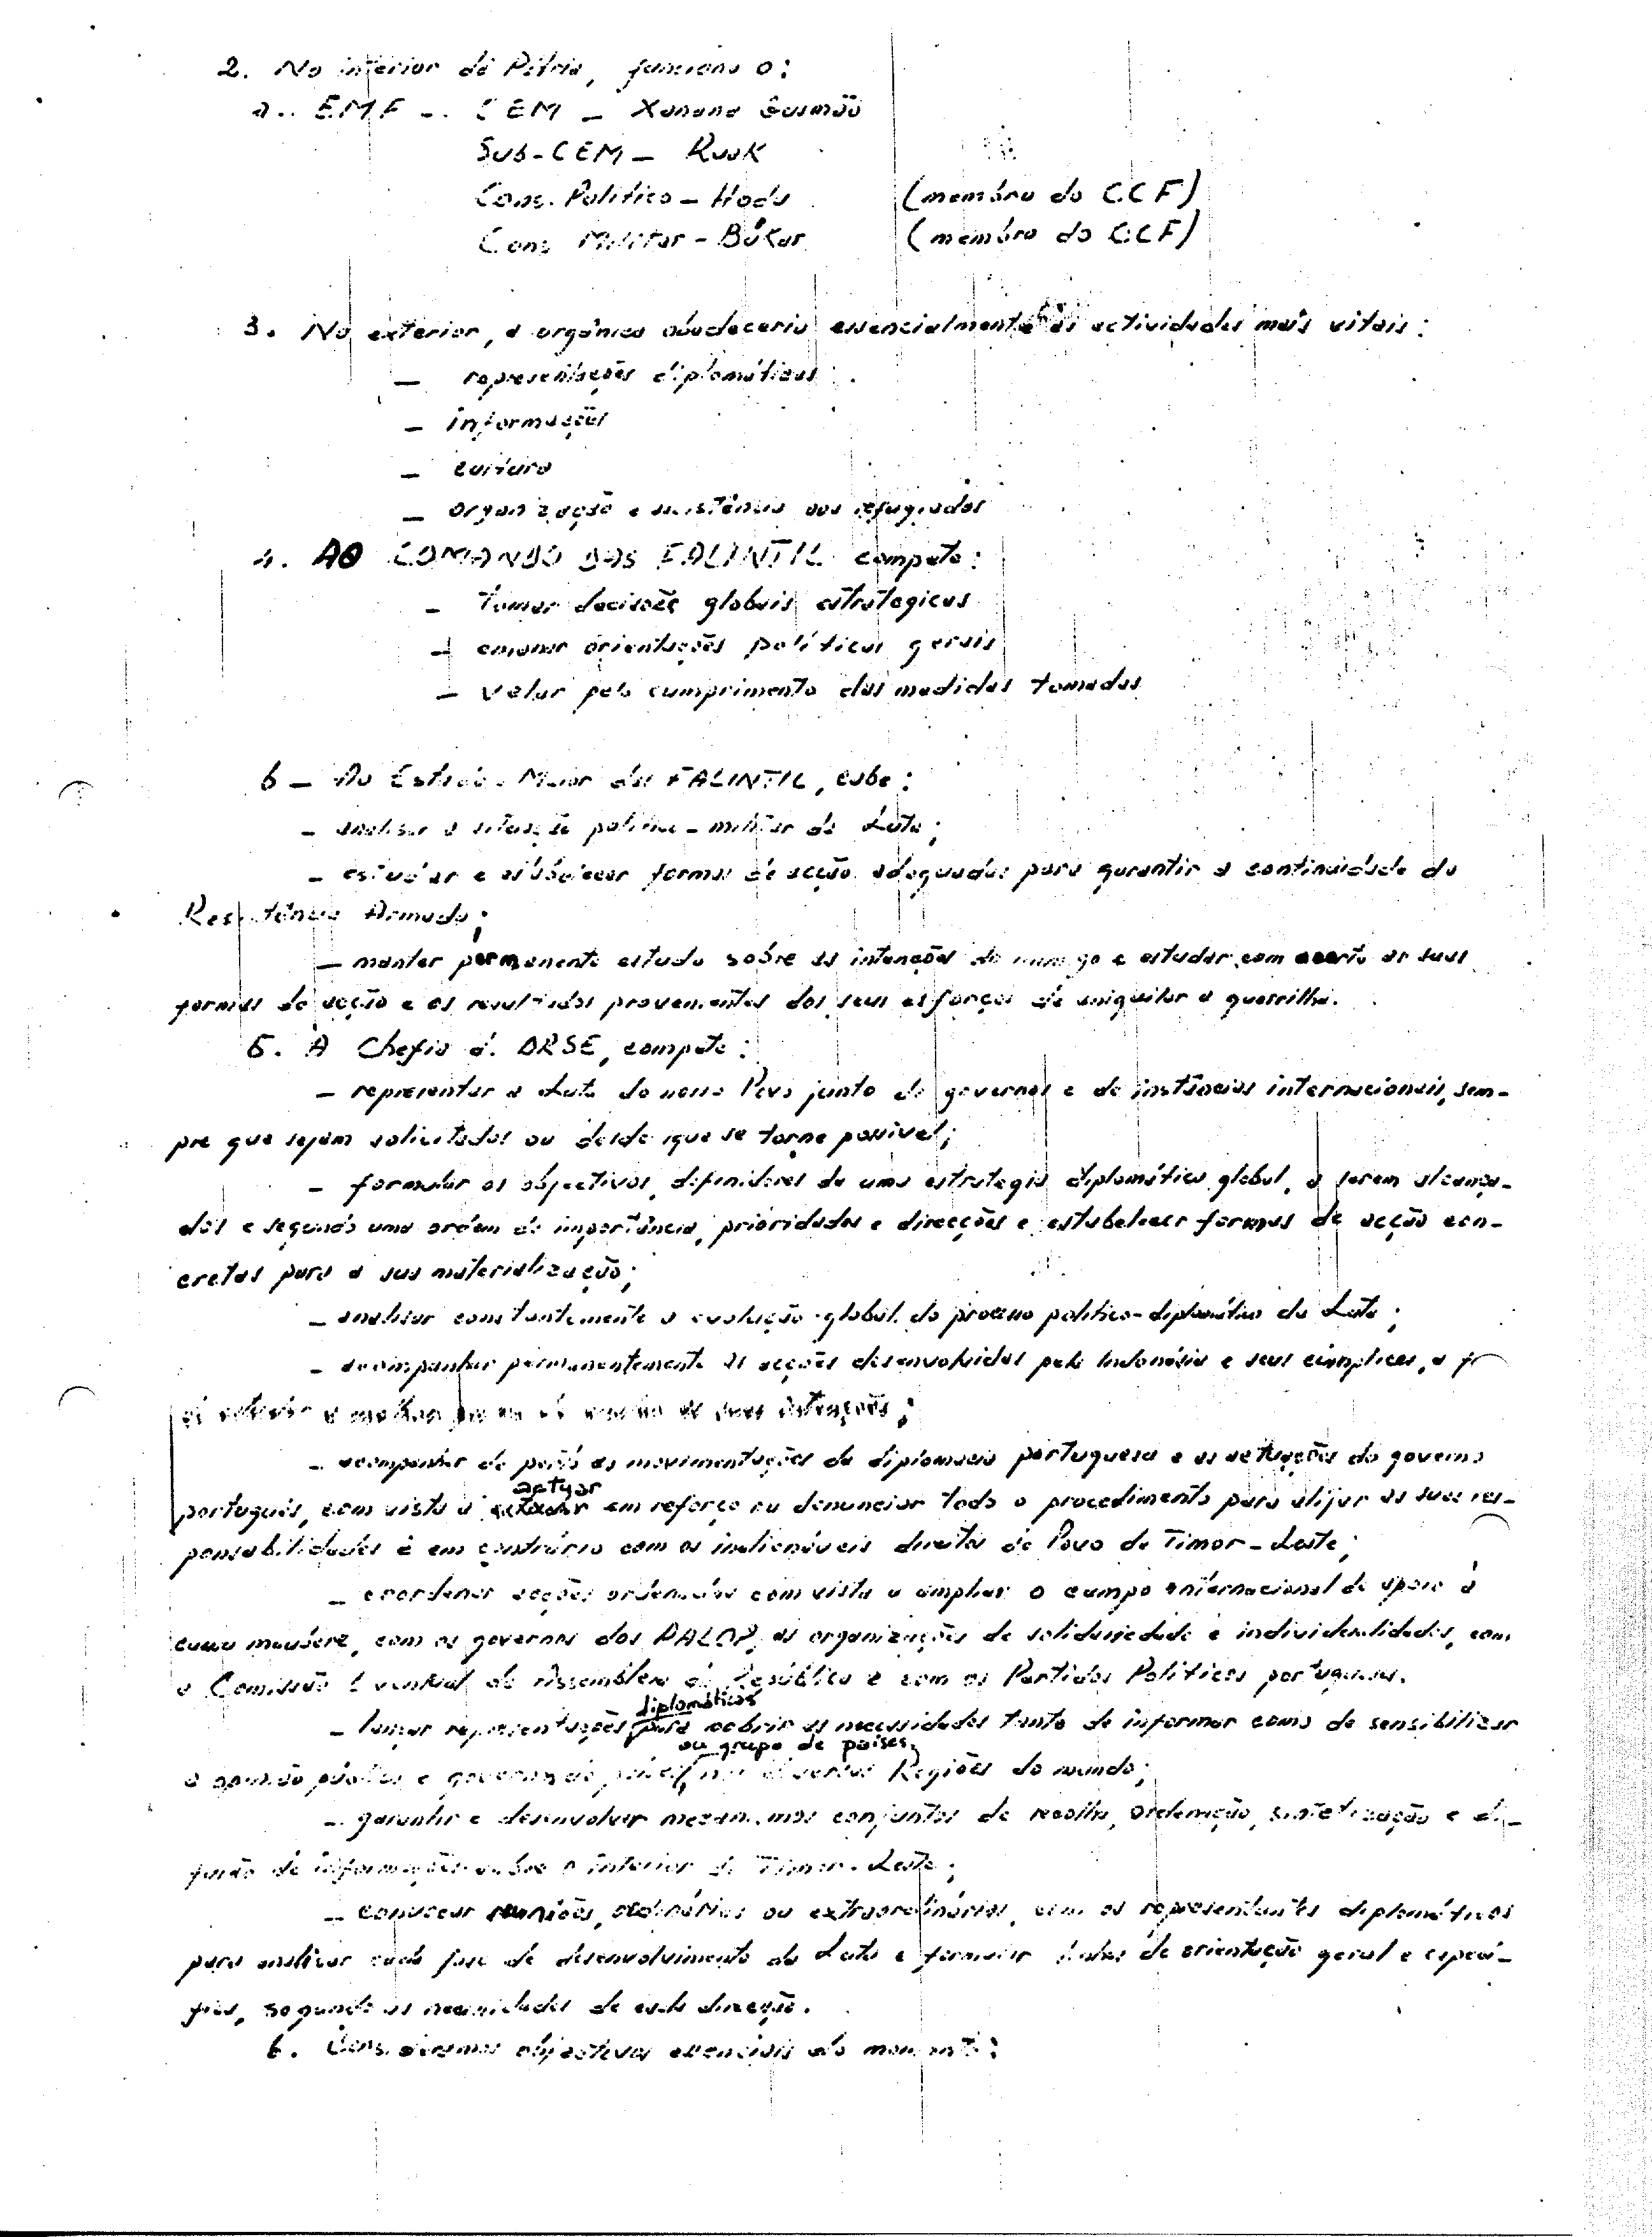 2. No interior da Pátria, funciona o:
a. EMF - CEM - Xanana Gusmão
Sub-CEM - Ruak
Cons. Político - Hodu (membro do CCF)
Cons. Militar - Búkar (membro do CCF)
3. No exterior, a orgânica obedeceria essencialmente às actividades mais vitais:
- representações diplomáticas
- informações
- cultura
- organização e assistência aos refugiados
4. AO COMANDO DAS FALINTIL compete:
- tomar decisões globais estrategicas
- emanar orientações políticas gerais
- velar pelo cumprimento das medidas tomadas
b - Ao Estado-Maior das FALINTIL, cabe:
- analisar a situação político-militar da Luta;
- estudar e estabelecer formas de acção adequadas para garantir a continuidade da
Resistência Armada;
- manter permanente estudo sobre as intenções do inimigo e estudar com acerto as suas
formas de acção e os resultados provenientes dos seus esforços de aniquilar a guerrilha.
5. A Chefia da DRSE, compete:
- representar a Luta do nosso Povo junto de governos e de instâncias internacionais, sem-
pre que sejam solicitados ou desde que se torne possível;
- formular os objectivos, definidores de uma estrategia diplomática global, a serem alcança-
dos e segundo uma ordem de importância, prioridades e direcções e estabelecer formas de acção con-
cretas para a sua materialização;
- analisar constantemente a evolução global do processo político-diplomático da Luta;
- acompanhar permanentemente as acções desenvolvidas pela Indonésia e seus cúmplices, a
suas intenções;
- acompanhar de perto as movimentações da diplomacia portuguesa e as actuações do governo
português, com vista a actuar em reforço ou denunciar todo o procedimento para alijar as suas res-
ponsabilidades e em contrário com os inalienáveis direitos do Povo de Timor-Leste;
- coordenar acções ordenadas com vista a ampliar o campo internacional de apoio à
causa maubere, com os governos dos PALOP, as organizações de solidariedade e individualidades, com
a Comissão Eventual da Assembleia da República e com os Partidos Políticos portugueses.
- lançar representações diplomáticas para cobrir as necessidades tanto de informar como de sensibilizar
ou grupo de países,
a opinião pública e governos Regiões do mundo;
- garantir e desenvolver mecanismos conjuntos de recolha, ordenação, sintetização e di-
fusão de informações sobre o interior de Timor-Leste;
- convocar reuniões, ordinárias ou extraordinárias, com os representantes diplomáticos
para analizar cada fase de desenvolvimento da Luta e formular linhas de orientação geral e especí-
fica, segundo as necessidades de cada direcção.
6. Consideramos objectivos essenciais do momento: